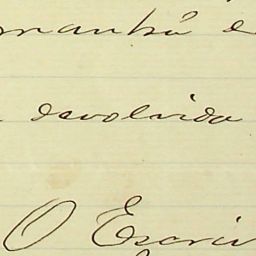 manhã e
devolvida
O Escri